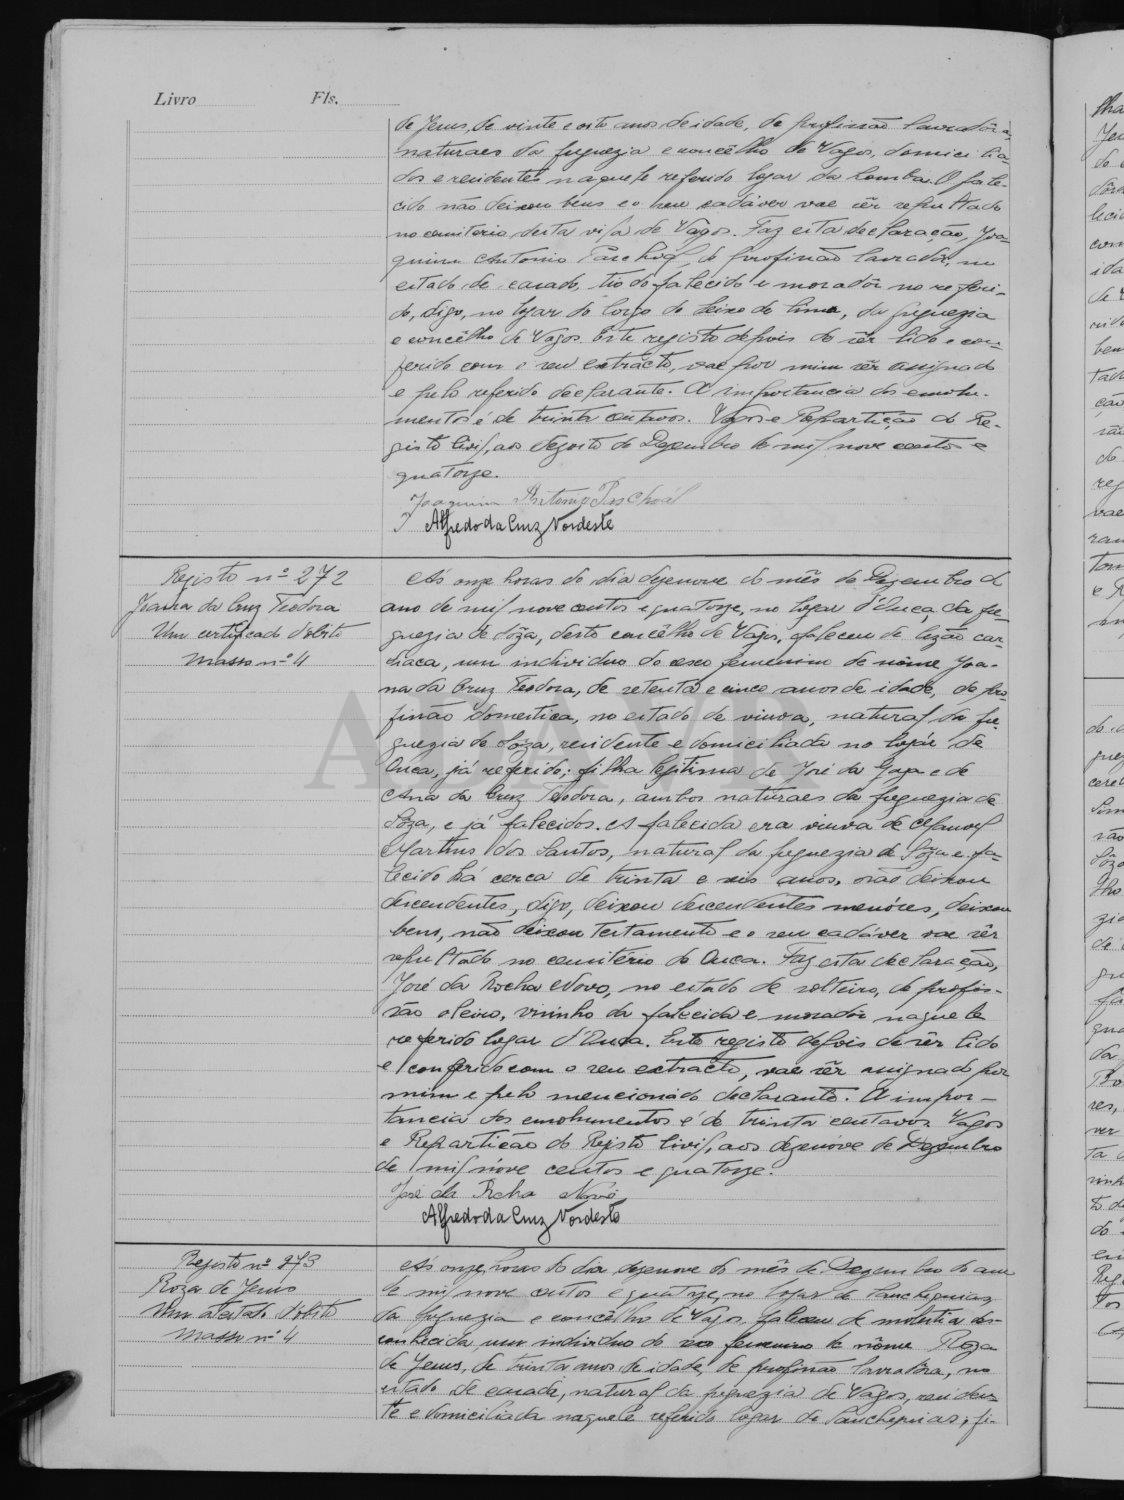 Livro Fls.
de Jesus, de vinte e oito anos de idade, de profissão lavradôra,
naturaes da freguezia e concêlho de Vagos, domicilia-
dos e residentes naquele referido logar da Lomba. O fale-
cido não deixou bens e o seu cadáver vae sêr sepultado
no cemiterio desta vila de Vagos. Faz esta declaração, Joa-
quim Antonio Paschoal, de profissão lavradôr, no
estado de casado, tio do falecido e moradôr no referi-
do, digo, no logar do Corgo do Seixo de Cima, da freguezia
e concêlho de Vagos. Este registo depois de sêr lido e con-
ferido com o seu extrácto, vae por mim sêr assignado
e pelo referido declarante. A importancia dos emolu-
mentos é de trinta centavos. Vagos e Repartição do Re-
gisto Civil, aos dezoito de Dezembro de mil nove centos e
quatorze.
Joaquim Antonio Paschoal
Alfredo da Cruz Nordeste
Registo nº 272
Joana da Cruz Teodora
Um certificado d'obito
Masso nº 4
Ás onze horas do dia dezenove do mês de Dezembro do
ano de mil nove centos e quatorze, no logar d'Ouca, da fre-
guezia de Sôza, deste concêlho de Vagos, faleceu de lezão car-
diaca, um individuo do sexo femenino de nôme Joa-
na da Cruz Teodora, de setenta e cinco anos de idade, de pro-
fissão domestica, no estado de viuva, natural da fre-
guezia de Sôza, residente e domiciliada no logár de
Ouca, já referido; filha legitima de José da Graça e de
Ana da Cruz Teodora, ambos naturaes da freguezia de
Sôza, e já falecidos. A falecida era viuva de Manoel
Martins dos Santos, natural da freguezia de Sôza e fa-
lecido há cerca de trinta e seis anos, não deixou
descendentes, digo, deixou descendentes menóres, deixou
bens, não deixou testamento e o seu cadáver vae sêr
sepultado no cemitério de Ouca. Faz esta declaração,
José da Rocha Novo, no estado de solteiro, de profis-
são oleiro, visinho da falecida e moradôr naquele
referido logar d'Ouca. Este registo depois de sêr lido
e conferido com o seu extracto, vae sêr assignado por
mim e pelo mencionado declarante. A impor-
tancia dos emolumentos é de trinta centavos. Vagos
e Repartição do Registo Civil, aos dezenóve de Dezembro
de mil nóve centos e quatorze.
José da Rocha Novo
Alfredo da Cruz Nordeste
Registo nº 273
Roza de Jesus
Um atestado d'obito
Masso nº 4
Ás onze horas do dia dezenove do mês de Dezembro do ano
de mil nove centos e quatorze, no logar de Sanchequias,
da freguezia e concêlho de Vagos, faleceu de molestia des-
conhecida um individuo do sexo femenino de nôme Roza
de Jesus, de trinta anos de idade, de profissão lavradôra, no
estado de casada, natural da freguezia de Vagos, residen-
te e domiciliada naquele referido logar de Sanchequias; fi-
ADAVR